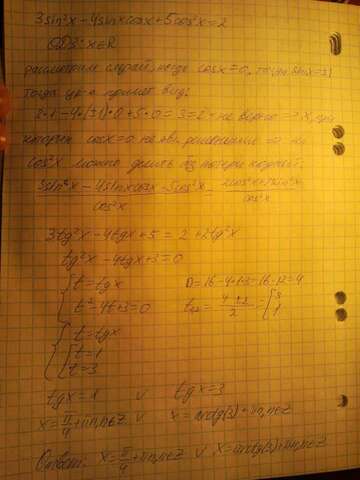 3sin²x-4sinxcosx+5cos²x=2
ОДЗ: x∈R
рассмотрим случай, когда cosx=0, тогда sinx=±1
Тогда ур-е примет вид:
3·1-4·(±1)·0+5·0=3=2 - не верно => x, при
котором cosx=0 не явл. решением => на
cos²x можно делить без потери корней.
3sin²x-4sinxcosx+5cos²x = 2cos²x+2sin²x
cos²x cos²x
3tg²x-4tgx+5=2+2tg²x
tg²x-4tgx+3=0
t=tgx D=16-4·1·3=16-12=4
t²-4t+3=0 t₁,₂=(4±2)/2=[3 1
t=tgx
t=1
t=3
tgx=1 ∨ tgx=3
x=π/4+πn,n∈Z ∨ x=arctg(3)+πn,n∈Z
Ответ: x=π/4+πn,n∈Z ∨ x=arctg(3)+πn,n∈Z